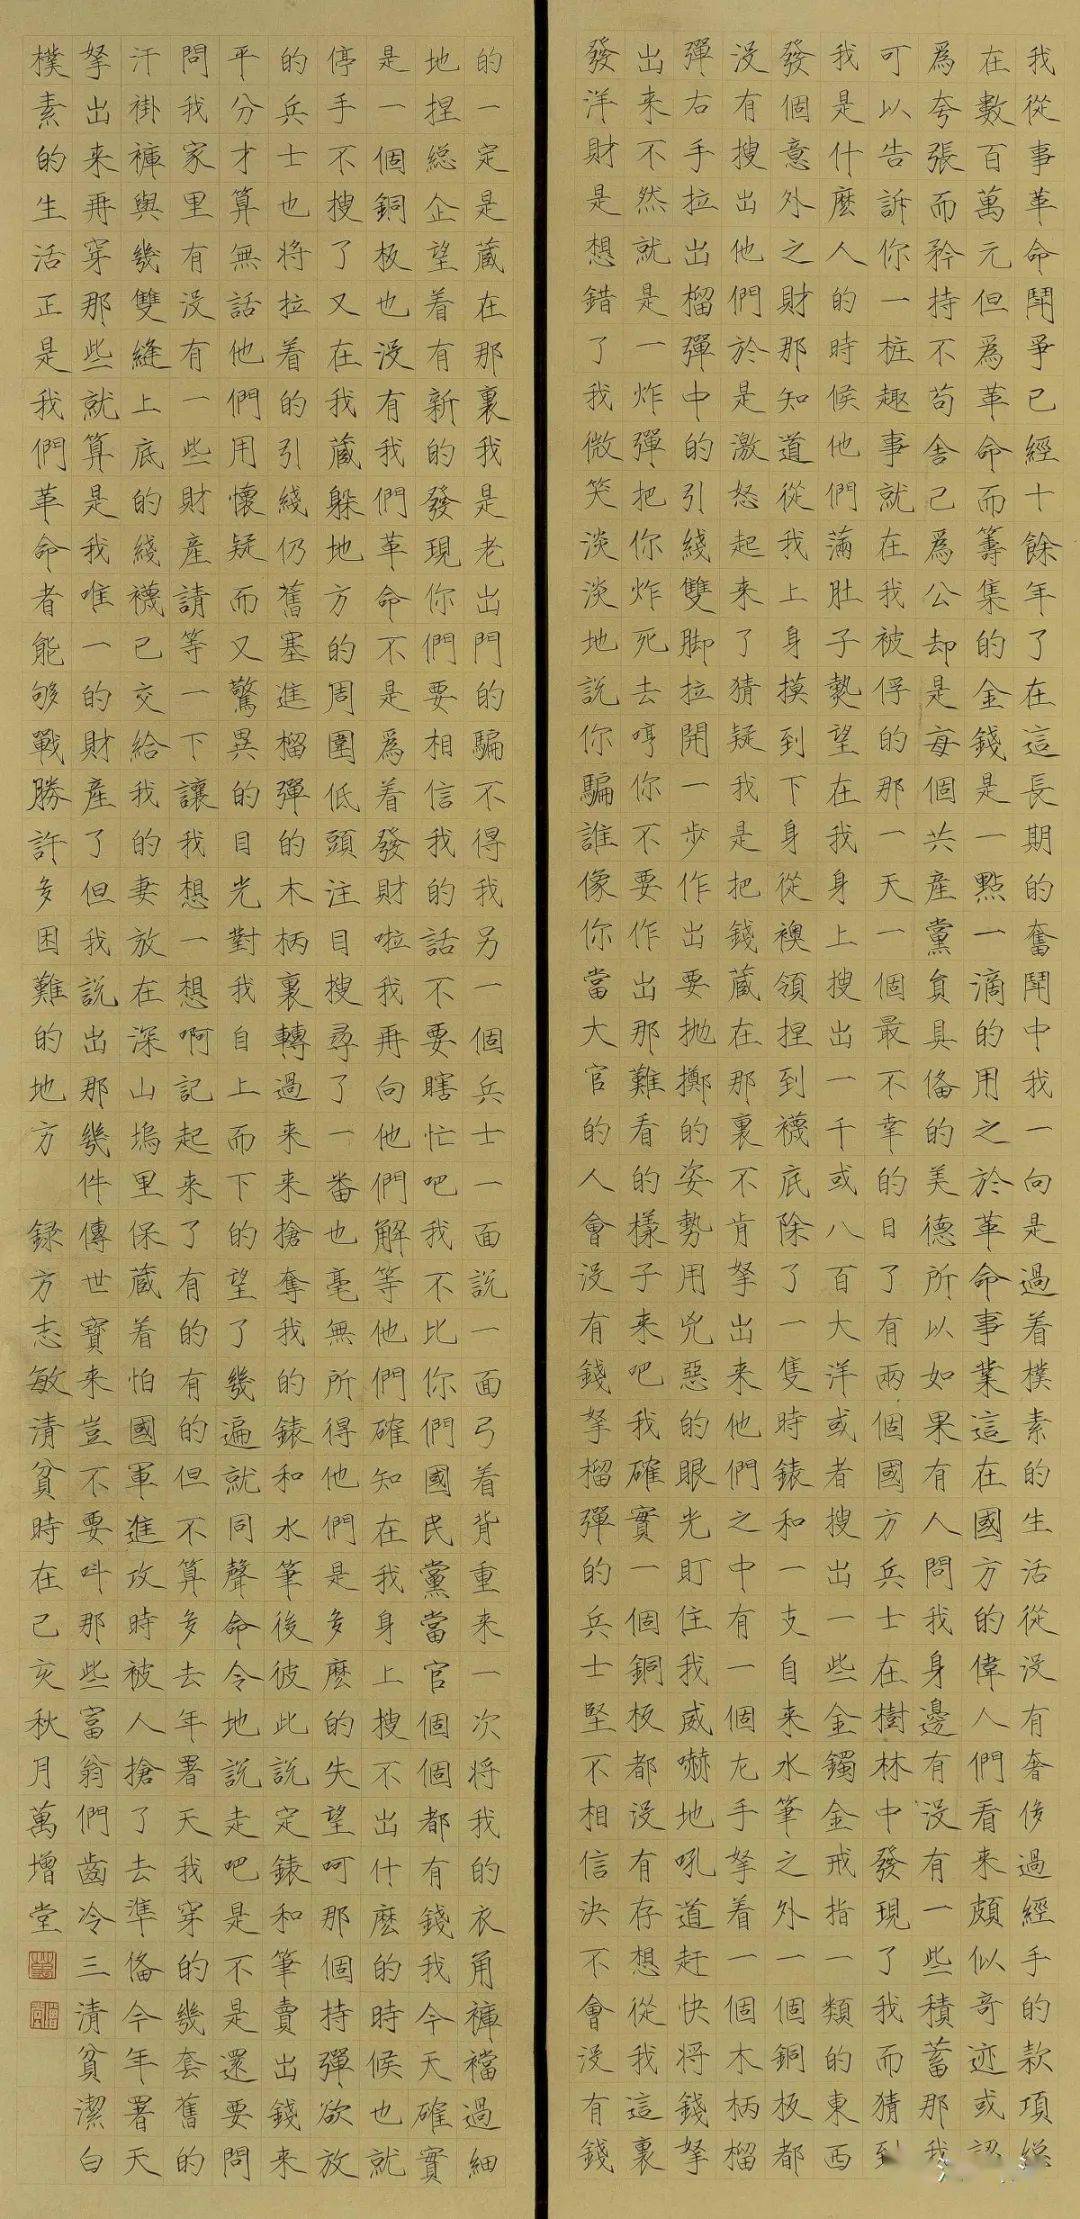 我從事革命鬥爭已經十餘年了在這長期的奮鬥中我一向是過着樸素的生活從没有奢侈過經手的款項總
在數百萬元但爲革命而籌集的金錢是一點一滴的用之於革命事業這在國方的偉人們看来頗似奇迹或認
爲夸張而矜持不苟舍己爲公却是每個共產黨員具俻的美德所以如果有人問我身邊有没有一些積蓄那我
可以告訴你一桩趣事就在我被俘的那一天一個最不幸的日了有兩個國方兵士在樹林中發現了我而猜到
我是什麽人的時候他們滿肚子熱望在我身上搜出一千或八百大洋或者搜出一些金鐲金戒指一類的東西
發個意外之財那知道從我上身摸到下身從襖領捏到襪底除了一隻時錶和一支自来水筆之外一個銅板都
没有搜出他們於是激怒起来了猜疑我是把錢蔵在那裏不肯拏出来他們之中有一個左手拏着一個木柄榴
彈右手拉出榴彈中的引綫雙脚拉開一步作出要抛擲的姿勢用兇惡的眼光盯住我威嚇地吼道赶快将錢拏
出来不然就是一炸彈把你炸死去哼你不要作出那難看的樣子来吧我確實一個銅板都没有存想從我這裏
發洋財是想錯了我微笑淡淡地説你騙誰像你當大官的人會没有錢拏榴彈的兵士堅不相信決不會没有錢
的一定是蔵在那裏我是老出門的騙不得我另一個兵士一面説一面弓着背重来一次将我的衣角褲襠過細
地捏總企望着有新的發現你們要相信我的話不要瞎忙吧我不比你們國民黨當官個個都有錢我今天確實
是一個銅板也没有我們革命不是爲着發財啦我再向他們解等他們確知在我身上搜不出什麽的時候也就
停手不搜了又在我蔵躲地方的周圍低頭注目搜尋了一番也毫無所得他們是多麽的失望呵那個持彈欲放
的兵士也将拉着的引綫仍舊塞進榴彈的木柄裏轉過来来搶奪我的錶和水筆後彼此説定錶和筆賣出錢来
平分才算無話他們用懷疑而又驚異的目光對我自上而下的望了幾遍就同聲命令地説走吧是不是還要問
問我家里有没有一些財產請等一下讓我想一想啊記起来了有的有的但不算多去年署天我穿的幾套舊的
汗褂褲與幾雙縫上底的綫襪已交給我的妻放在深山塢里保蔵着怕國軍進攻時被人搶了去準俻今年署天
拏出来再穿那些就算是我唯一的財產了但我説出那幾件傳世寶来豈不要叫那些富翁們齒冷三清貧潔白
樸素的生活正是我們革命者能够戰勝許多困難的地方 録方志敏清貧時在己亥秋月萬增堂